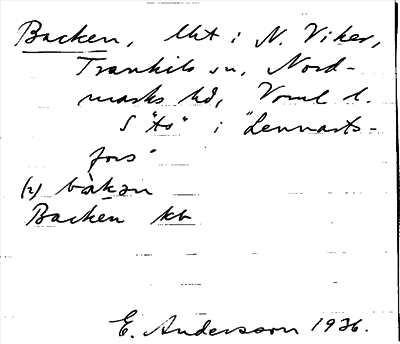 Backen, lht i N. Viker,
Trankils sn, Nord-
marks hd, Vrml l.
S "ts" i "Lennarts-
fors"
(2) bàkən
Backen kb
E. Andersson 1936.